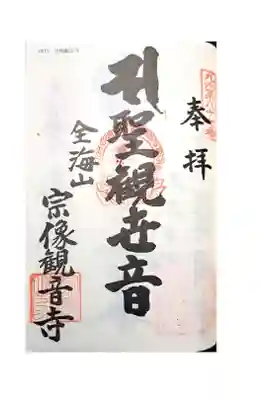 奉拝
聖観世音
全海山
宗像観音寺